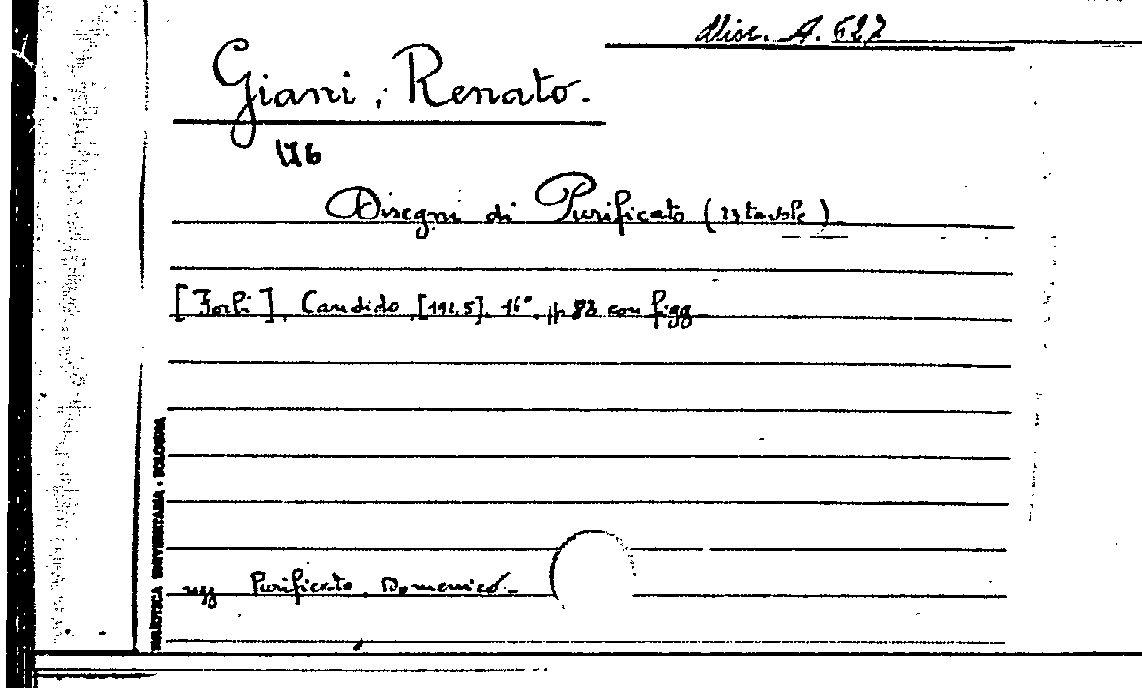 Misc. A. 627
Giani, Renato.
176
Disegni di Purificato (23 tavole)
[Forlì], Candido, [194.5]. 16°. pp 83 con figg
Purificato, Domenico.
BIBLIOTECA UNIVERSITARIA - BOLOGNA